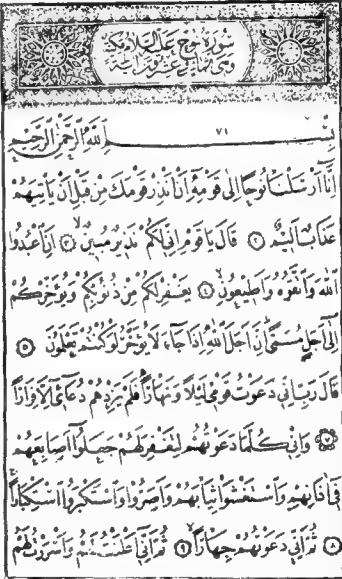 سورة نوح عليه السلام مكية
وهي ثمان وعشرون آية
٧١
بسم الله الرحمن الرحيم
انا ارسلنا نوحا الى قومه ان انذر قومك من قبل ان ياتيهم
عذاب اليم ۝٢ قال يا قوم اني لكم نذير مبين ۝٣ ان اعبدوا
الله واتقوه واطيعون ۝٤ يغفر لكم من ذنوبكم ويؤخركم
الى اجل مسمى ان اجل الله اذا جاء لا يؤخر لو كنتم تعلمون ۝٥
قال رب اني دعوت قومي ليلا ونهارا فلم يزدهم دعائي الا فرارا
۝٧ واني كلما دعوتهم لتغفر لهم جعلوا اصابعهم
في اذانهم واستغشوا ثيابهم واصروا واستكبروا استكبارا
۝٨ ثم اني دعوتهم جهارا ۝٩ ثم اني اعلنت لهم واسررت لهم